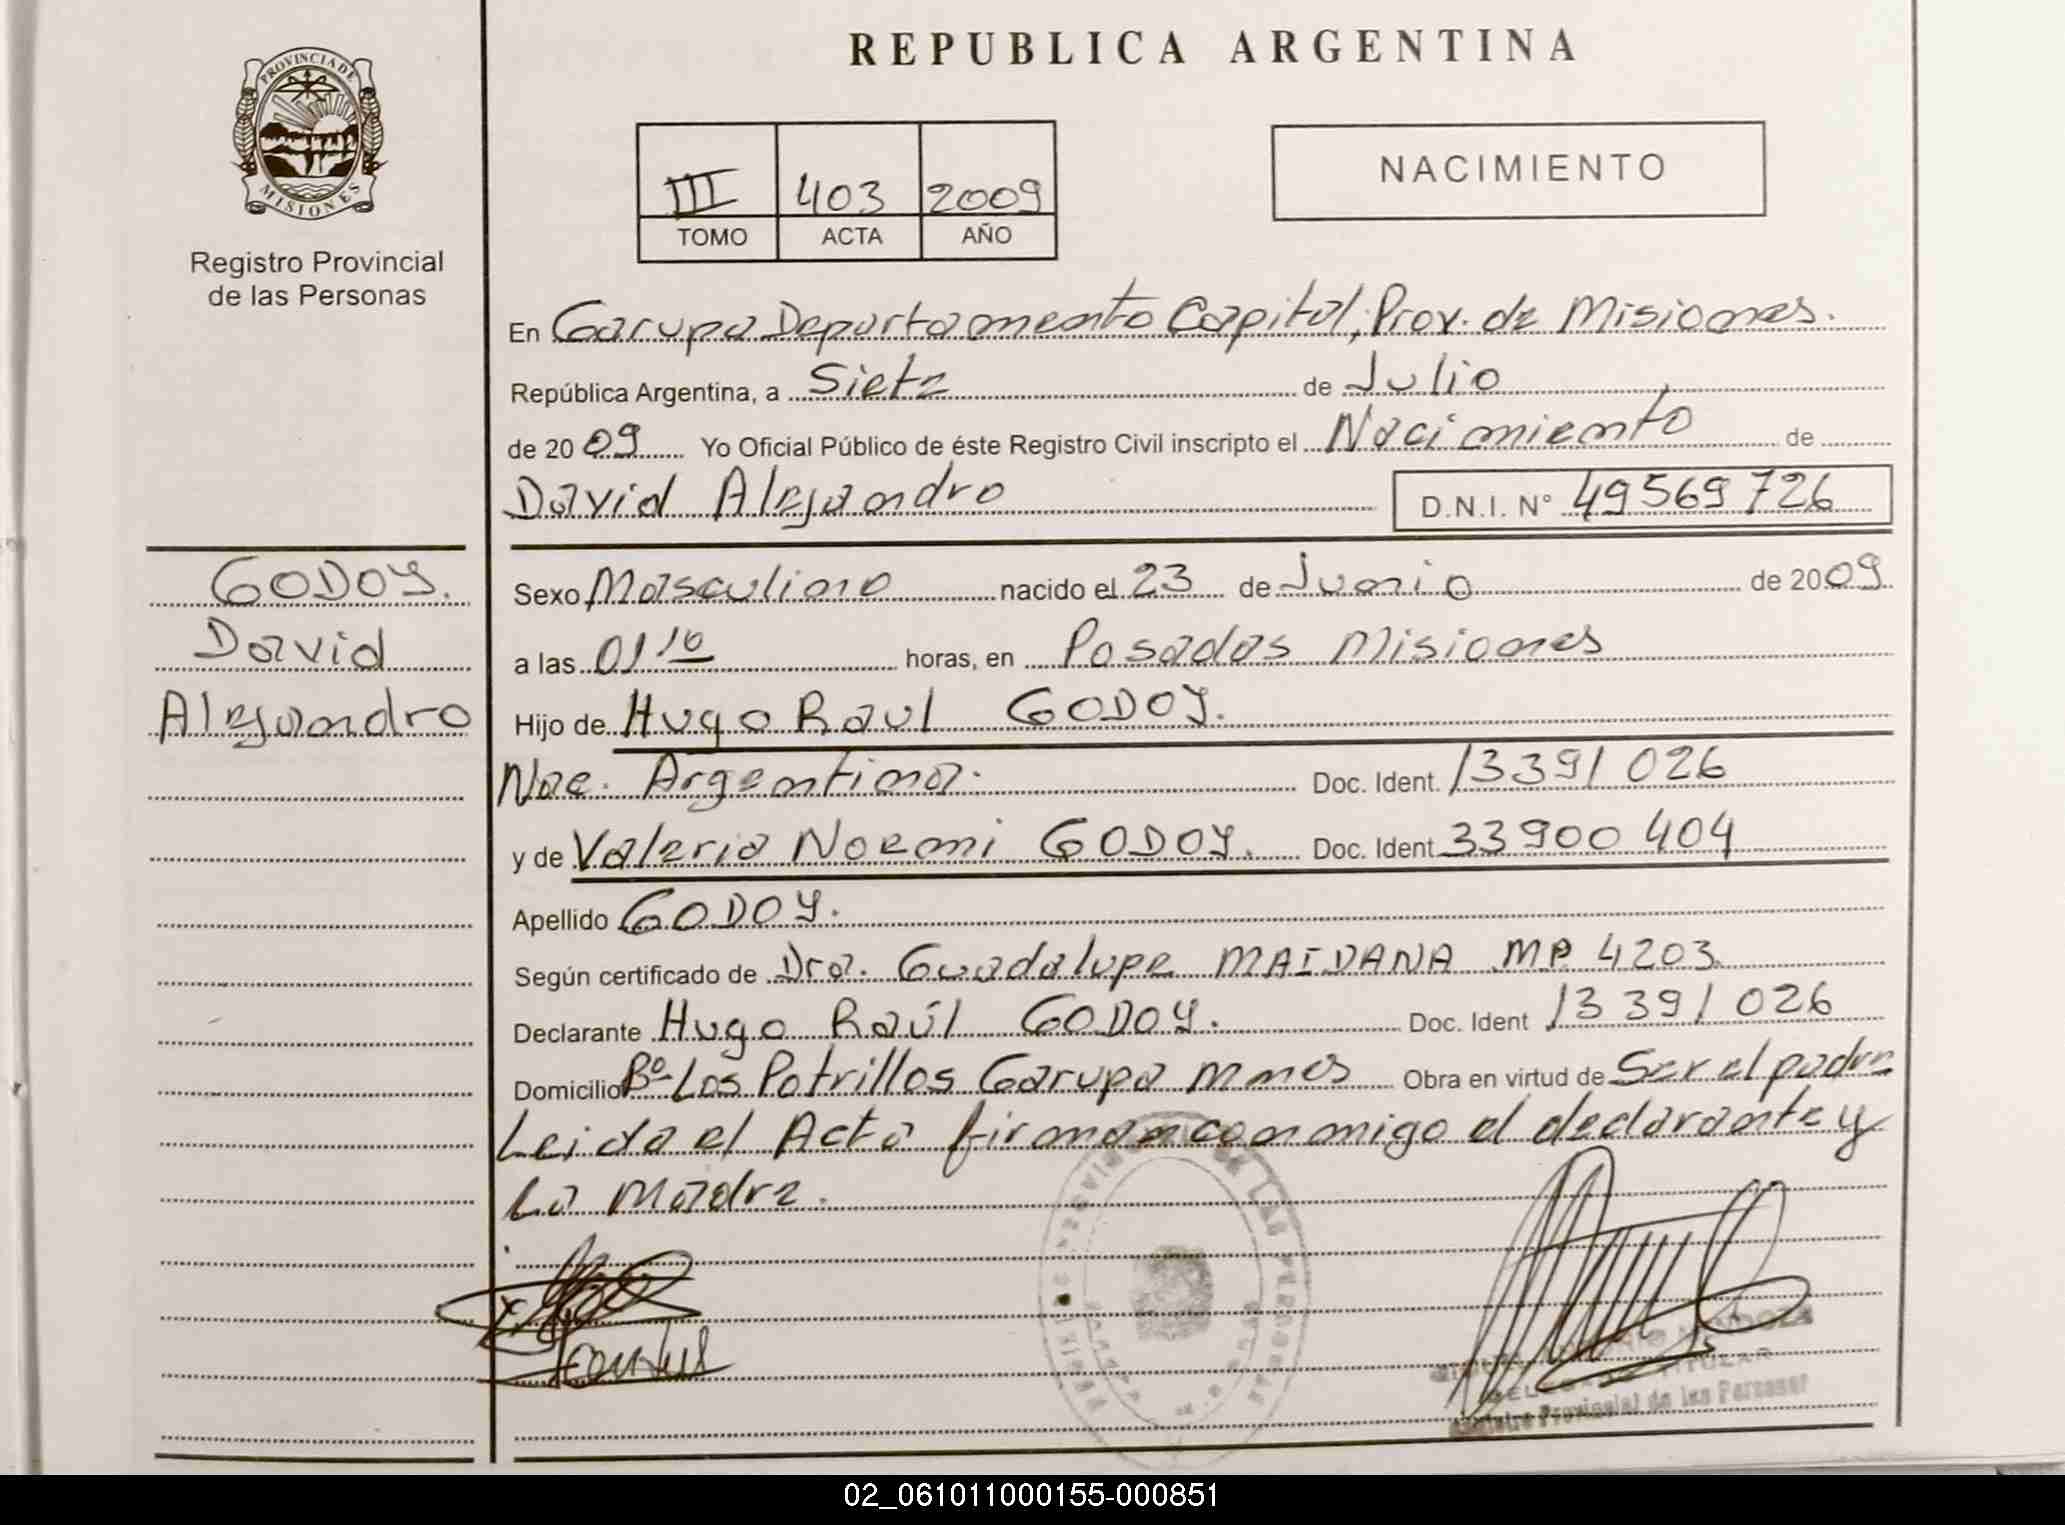 REPUBLICA ARGENTINA
PROVINCIA DE
MISIONES
Registro Provincial
de las Personas
III 403 2009
TOMO ACTA AÑO
NACIMIENTO
En Garupa Departamento Capital, Prov. de Misiones.
República Argentina, a Siete de Julio
de 2009 Yo Oficial Público de éste Registro Civil inscripto el Nacimiento de
David Alejandro D.N.I. N° 49569726
GODOY.
David
Alejandro
Sexo Masculino nacido el 23 de Junio de 2009
a las 01 10 horas, en Posadas Misiones
Hijo de Hugo Raul GODOY.
Nac. Argentina. Doc. Ident. 13391026
y de Valeria Noemi GODOY. Doc. Ident 33900404
Apellido GODOY.
Según certificado de Dra. Guadalupe MAIDANA MP. 4203
Declarante Hugo Raúl GODOY. Doc. Ident 13391026
Domicilio Bº Los Potrillos Garupa Mnes Obra en virtud de Ser el padre
Leida el Acta firman conmigo el declarante y
La Madre.
MENDOZA
TITULAR
Registro Provincial de las Personas
02_061011000155-000851